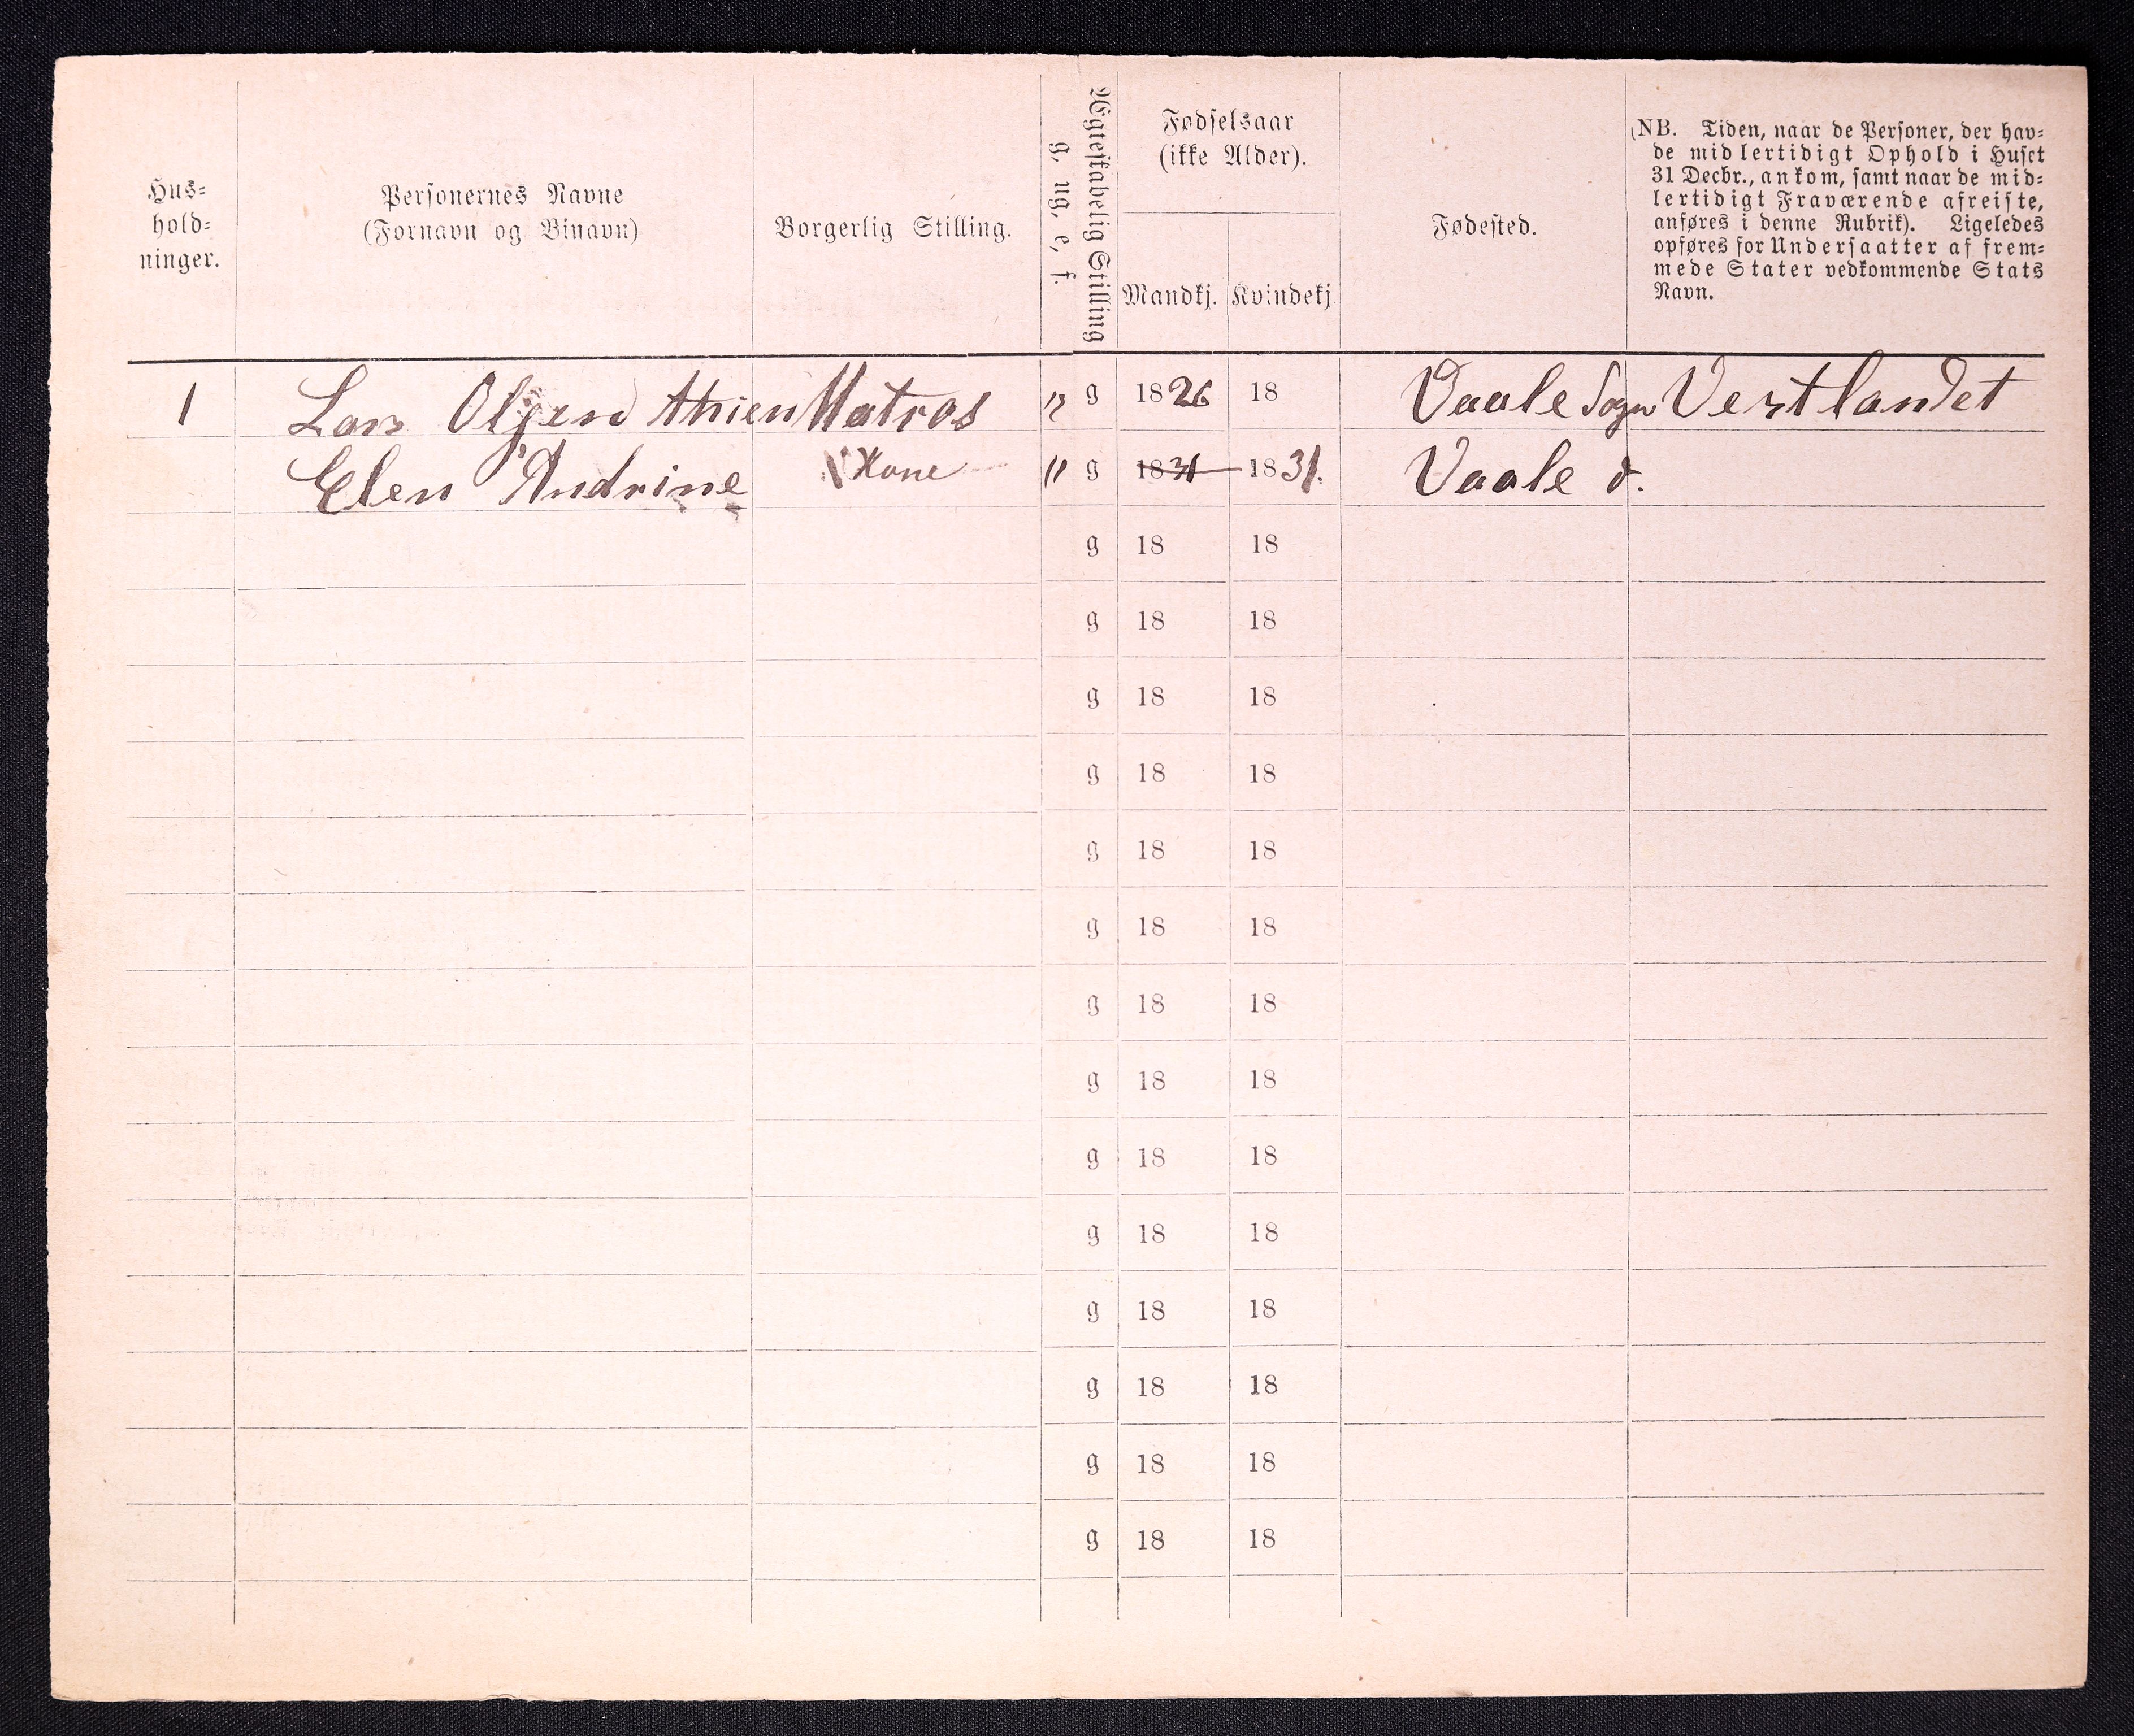 Hus-
hold-
ninger.
Personernes Navne
(Fornavn og Binavn)
Borgerlig Stilling.
Ægteskabelig Stilling
g, ug, e, f.
Fødselsaar
(ikke Alder).
Mandkj. Kvindekj
Fødested.
(NB. Tiden, naar de Personer, der hav-
de midlertidigt Ophold i Huset
31 Decbr., ankom, samt naar de mid-
lertidigt Fraværende afreiste,
anføres i denne Rubrik). Ligeledes
opføres for Undersaatter af frem-
mede Stater vedkommende Stats
Navn.
1 Lars Olsen Matros g 1826 18 Vaale Sogn Vestlandet
Elen Andrine Kone g 1831 1831. Vaale d.
g 18 18
g 18 18
g 18 18
g 18 18
g 18 18
g 18 18
g 18 18
g 18 18
g 18 18
g 18 18
g 18 18
g 18 18
g 18 18
g 18 18